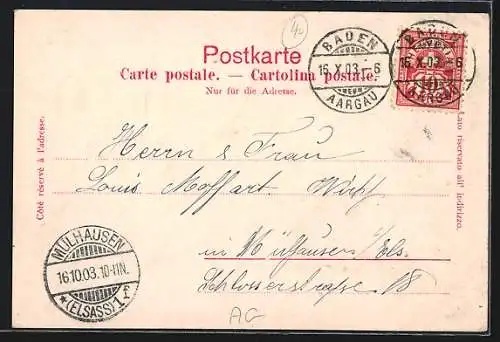 4.-
Postkarte
Carte postale. — Cartolina postale.
Nur für die Adresse.
BADEN
16. X. 03. - 6
AARGAU
BADEN
16. X. 03. - 6
AARGAU
Côté réservé à l'adresse.
Lato riservato all' indirizzo.
Herrn & Frau
Louis Moffart. Wirt
in Mülhausen i/Els.
Schlosserstrasse 18
MÜLHAUSEN
16.10.03. 10-11N.
* (ELSASS) 1
AG